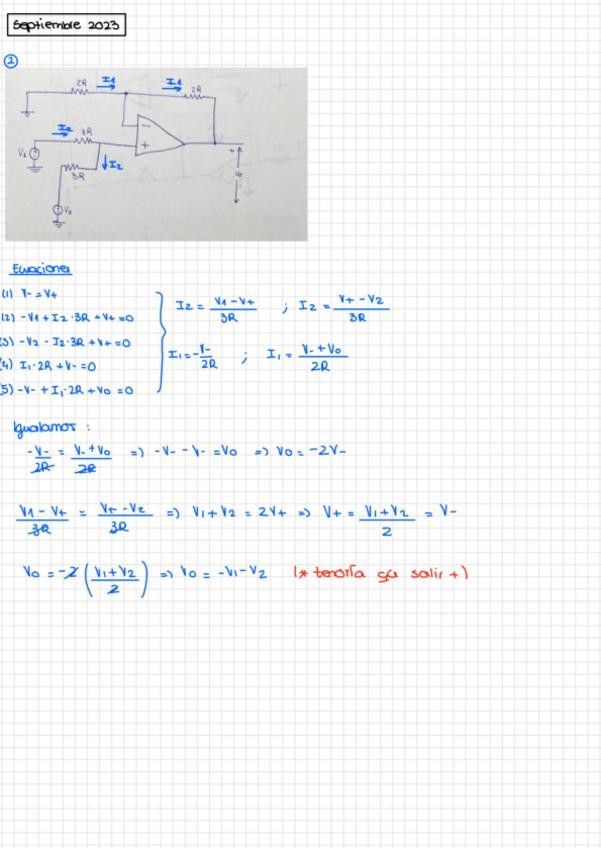 Septiembre 2023
②
2R I1 I1 2R
I2 3R
V1
↓I2
3R
V2
V0
Ecuaciones
(1) V- = V+
(2) -V1 + I2·3R + V+ = 0
(3) -V2 - I2·3R + V+ = 0
(4) I1·2R + V- = 0
(5) -V- + I1·2R + V0 = 0
I2 = V1 - V+ / 3R ; I2 = V+ - V2 / 3R
I1 = -V- / 2R ; I1 = V- + V0 / 2R
Igualamos :
-V- / 2R = V- + V0 / 2R => -V- - V- = V0 => V0 = -2V-
V1 - V+ / 3R = V+ - V2 / 3R => V1 + V2 = 2V+ => V+ = V1 + V2 / 2 = V-
V0 = -2 (V1 + V2 / 2) => V0 = -V1 - V2 (* tendría salir +)